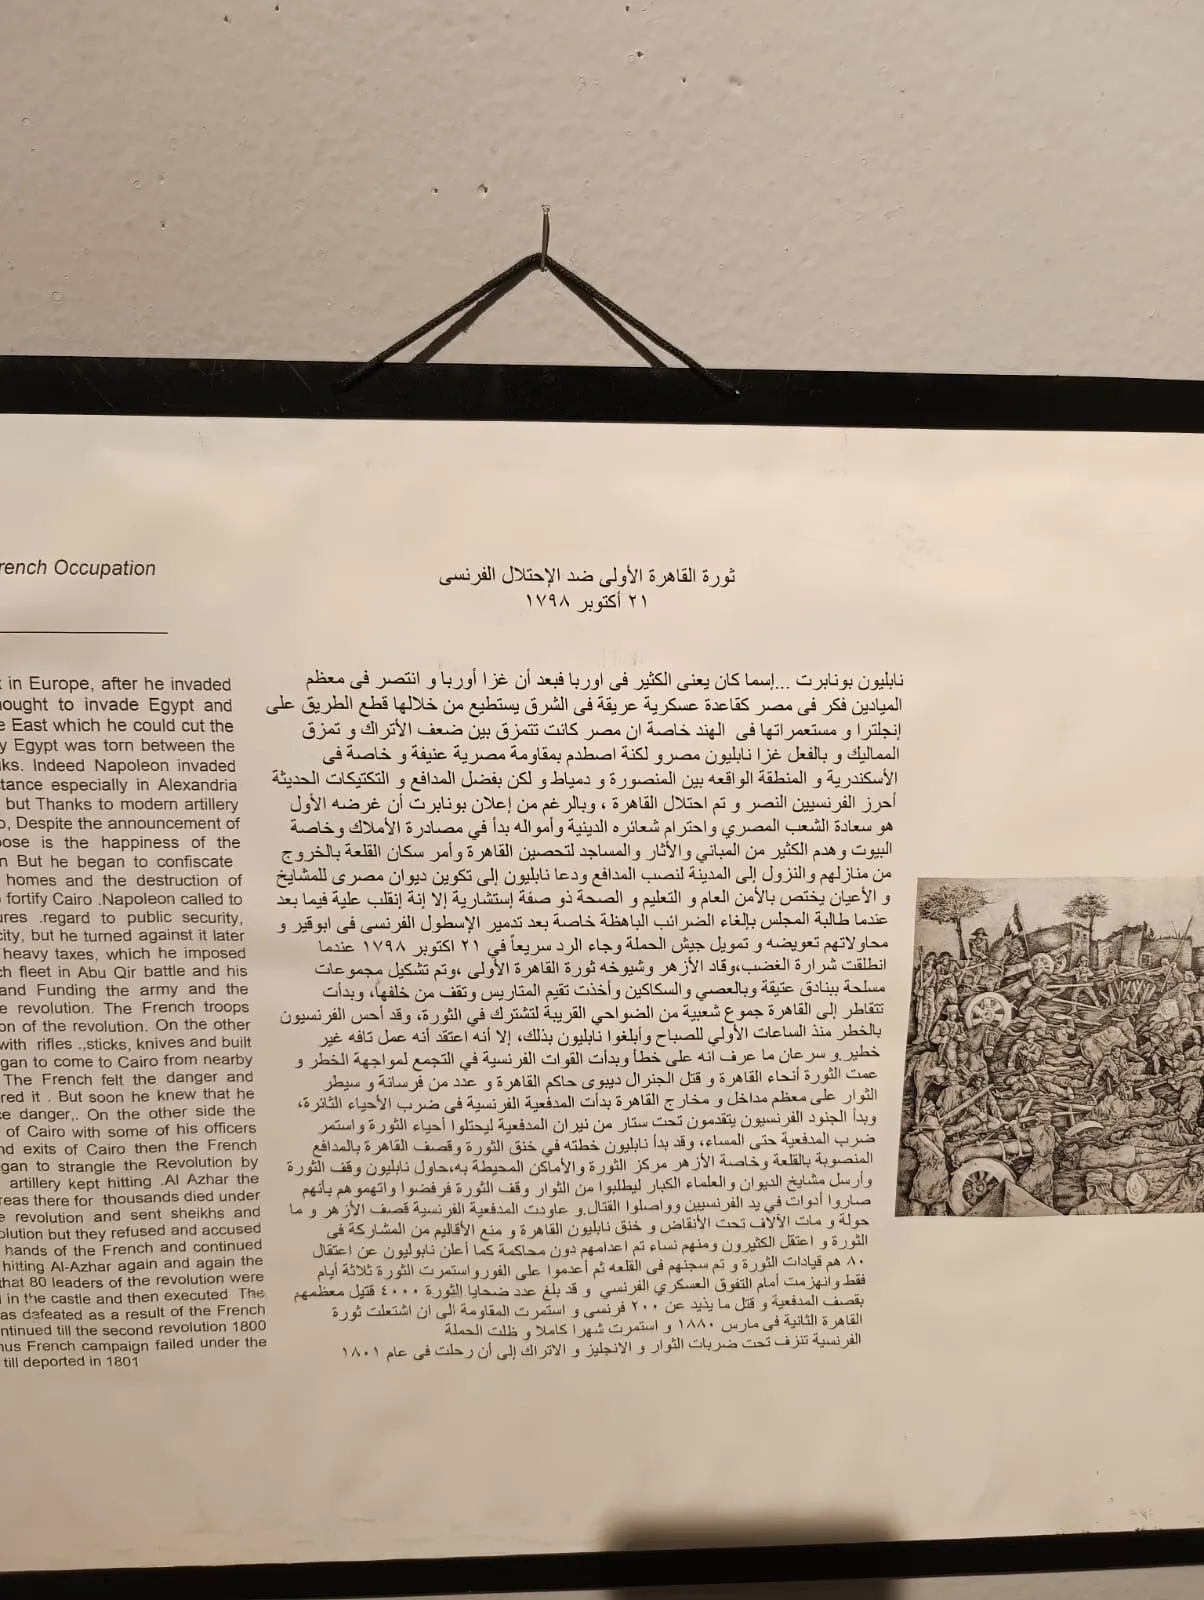 rench Occupation
in Europe, after he invaded
ought to invade Egypt and
e East which he could cut the
y Egypt was torn between the
ks. Indeed Napoleon invaded
tance especially in Alexandria
but Thanks to modern artillery
o, Despite the announcement of
ose is the happiness of the
n But he began to confiscate
homes and the destruction of
fortify Cairo .Napoleon called to
ures .regard to public security,
city, but he turned against it later
heavy taxes, which he imposed
ch fleet in Abu Qir battle and his
and Funding the army and the
e revolution. The French troops
on of the revolution. On the other
with rifles .,sticks, knives and built
gan to come to Cairo from nearby
The French felt the danger and
red it . But soon he knew that he
ce danger,. On the other side the
of Cairo with some of his officers
nd exits of Cairo then the French
gan to strangle the Revolution by
artillery kept hitting .Al Azhar the
reas there for thousands died under
e revolution and sent sheikhs and
olution but they refused and accused
hands of the French and continued
hitting Al-Azhar again and again the
that 80 leaders of the revolution were
l in the castle and then executed The
as defeated as a result of the French
ntinued till the second revolution 1800
hus French campaign failed under the
till deported in 1801
ثورة القاهرة الأولى ضد الإحتلال الفرنسى
٢١ أكتوبر ١٧٩٨
نابليون بونابرت ...إسما كان يعنى الكثير فى اوربا فبعد أن غزا أوربا و انتصر فى معظم
الميادين فكر فى مصر كقاعدة عسكرية عريقة فى الشرق يستطيع من خلالها قطع الطريق على
إنجلترا و مستعمراتها فى الهند خاصة ان مصر كانت تتمزق بين ضعف الأتراك و تمزق
المماليك و بالفعل غزا نابليون مصرو لكنة اصطدم بمقاومة مصرية عنيفة و خاصة فى
الأسكندرية و المنطقة الواقعه بين المنصورة و دمياط و لكن بفضل المدافع و التكتيكات الحديثة
أحرز الفرنسيين النصر و تم احتلال القاهرة ، وبالرغم من إعلان بونابرت أن غرضه الأول
هو سعادة الشعب المصري واحترام شعائره الدينية وأمواله بدأ في مصادرة الأملاك وخاصة
البيوت وهدم الكثير من المباني والأثار والمساجد لتحصين القاهرة وأمر سكان القلعة بالخروج
من منازلهم والنزول إلى المدينة لنصب المدافع ودعا نابليون إلى تكوين ديوان مصرى للمشايخ
و الأعيان يختص بالأمن العام و التعليم و الصحة ذو صفة إستشارية إلا إنة إنقلب علية فيما بعد
عندما طالبة المجلس بإلغاء الضرائب الباهظة خاصة بعد تدمير الإسطول الفرنسى فى ابوقير و
محاولاتهم تعويضه و تمويل جيش الحملة وجاء الرد سريعاً في ٢١ اكتوبر ١٧٩٨ عندما
انطلقت شرارة الغضب،وقاد الأزهر وشيوخه ثورة القاهرة الأولى ،وتم تشكيل مجموعات
مسلحة ببنادق عتيقة وبالعصي والسكاكين وأخذت تقيم المتاريس وتقف من خلفها، وبدأت
تتقاطر إلى القاهرة جموع شعبية من الضواحي القريبة لتشترك في الثورة، وقد أحس الفرنسيون
بالخطر منذ الساعات الأولي للصباح وأبلغوا نابليون بذلك، إلا أنه اعتقد أنه عمل تافه غير
خطير.و سرعان ما عرف انه على خطأ وبدأت القوات الفرنسية في التجمع لمواجهة الخطر و
عمت الثورة أنحاء القاهرة و قتل الجنرال ديبوى حاكم القاهرة و عدد من فرسانة و سيطر
الثوار على معظم مداخل و مخارج القاهرة بدأت المدفعية الفرنسية فى ضرب الأحياء الثائرة،
وبدأ الجنود الفرنسيون يتقدمون تحت ستار من نيران المدفعية ليحتلوا أحياء الثورة واستمر
ضرب المدفعية حتى المساء، وقد بدأ نابليون خطته في خنق الثورة وقصف القاهرة بالمدافع
المنصوبة بالقلعة وخاصة الأزهر مركز الثورة والأماكن المحيطة به،حاول نابليون وقف الثورة
وأرسل مشايخ الديوان والعلماء الكبار ليطلبوا من الثوار وقف الثورة فرفضوا واتهموهم بأنهم
صاروا أدوات في يد الفرنسيين وواصلوا القتال.و عاودت المدفعية الفرنسية قصف الأزهر و ما
حولة و مات الآلاف تحت الأنقاض و خنق نابليون القاهرة و منع الأقاليم من المشاركة فى
الثورة و اعتقل الكثيرون ومنهم نساء تم اعدامهم دون محاكمة كما أعلن نابوليون عن اعتقال
٨٠ هم قيادات الثورة و تم سجنهم فى القلعه ثم أعدموا على الفورواستمرت الثورة ثلاثة أيام
فقط وانهزمت أمام التفوق العسكري الفرنسي و قد بلغ عدد ضحايا الثورة ٤٠٠٠ قتيل معظمهم
بقصف المدفعية و قتل ما يذيد عن ٢٠٠ فرنسى و استمرت المقاومة الى ان اشتعلت ثورة
القاهرة الثانية فى مارس ١٨٨٠ و استمرت شهرا كاملا و ظلت الحملة
الفرنسية تنزف تحت ضربات الثوار و الانجليز و الاتراك إلى أن رحلت فى عام ١٨٠١